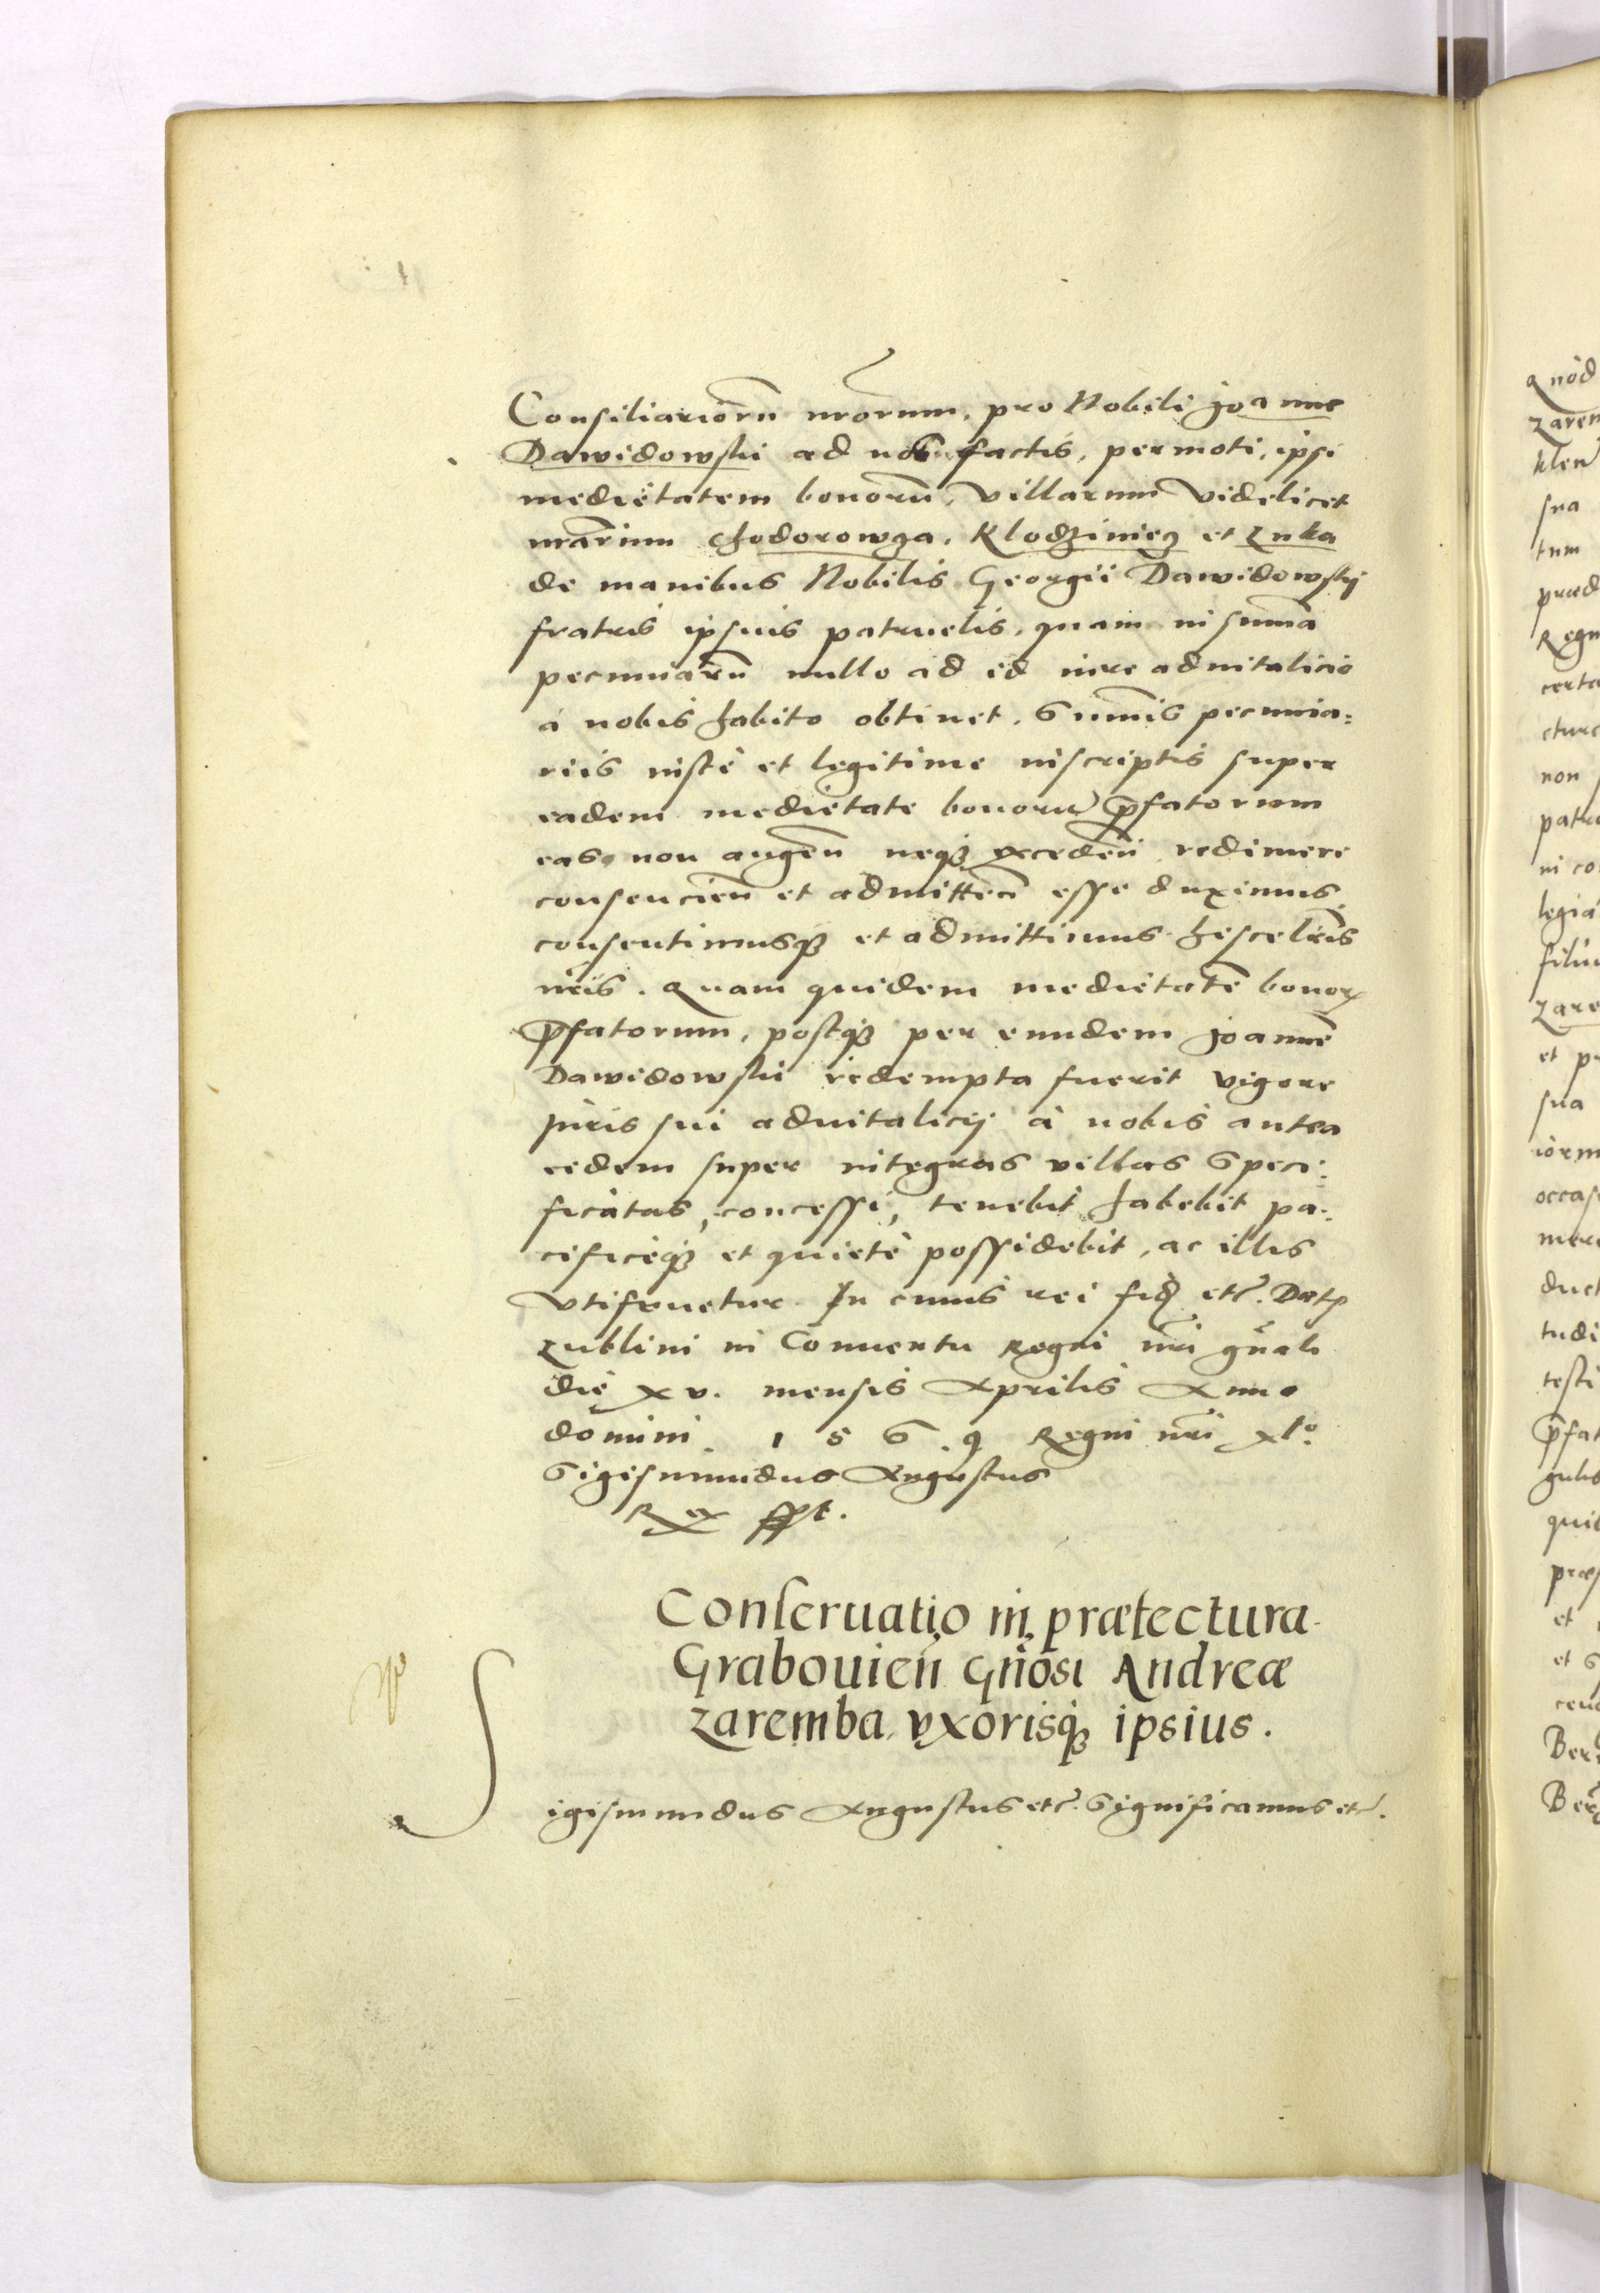 Consiliariorũ nrõrum, pro Nobili Joanne
Dawidowski ad nos factis, permoti, ipsi
medietatem bonorũ, villarum videlicet
nrãrum Chodorowza, Klodziniez et Luka
de manibus Nobilis Georgii Dawidowskj
fratris ipsius patruelis, quam in summã
pecuniarũ nullo ad id iure aduitalicio
à nobis habito obtinet, Summis pecunia:
riis iustè et legitime inscriptis super
eadem medietate bonorũ p̃fatorum
eas non augeñ neq; excedeñ redimere
consencieñ et admitteñ esse duximus,
consentimusq; et admittimus hisce lr̃is
nr̃is. Quam quidem medietatẽ bonor
p̃fatorum, postq; per eundem Joannẽ
Dawidowski redempta fuerit vigore
Juris sui aduitalicij à nobis antea
eidem super integras villas Speci:
ficatas, concessi, tenebit habebit pa:
cificeq; et quietè possidebit, ac illis
vtifruetur. In cuius rei fid etc̃. Dat
Lublini in Conuentu Regni nr̃i gñali
die xv. mensis Aprilis Anno
domini. 1 5 6 9 Regni nr̃i xlo.
Sigismundus Augustus
Rex sst.
Conseruatio in præfectura
Grabouieñ Gñosi Andreæ
Zaremba vxorisq; ipsius.
Sigismundus Augustus etc̃. Significamus etc̃.